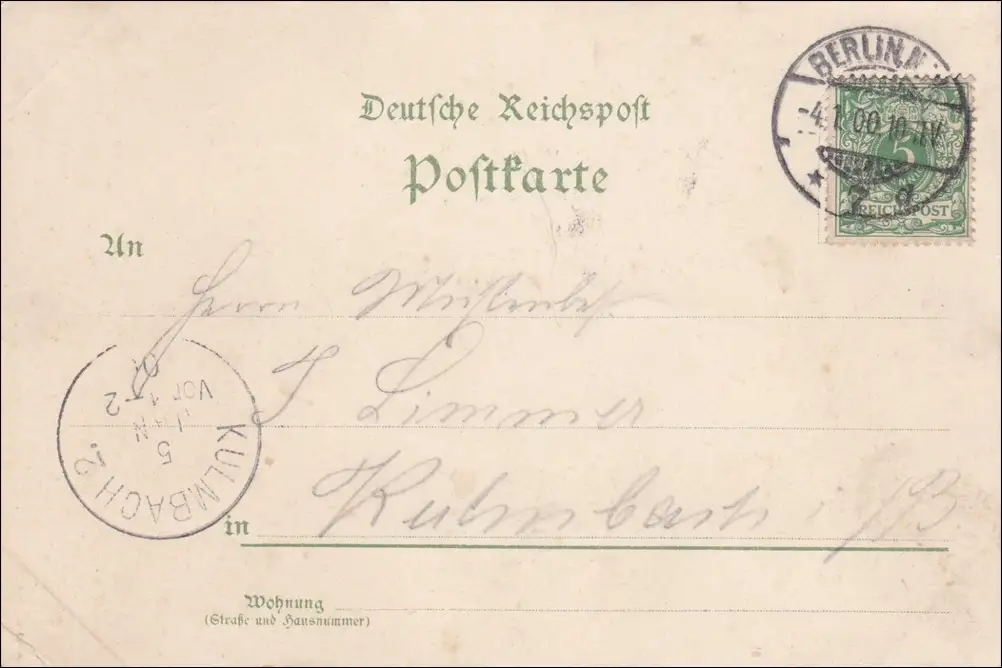 BERLIN.N.
-4.1.00.10-11V.
5
REICHSPOST
Deutsche Reichspost
Postkarte
An
Herrn
J Limmer
in Kulmbach i/B.
KULMBACH 2.
5
JAN
VOR 1-2
Wohnung
(Straße und Hausnummer)